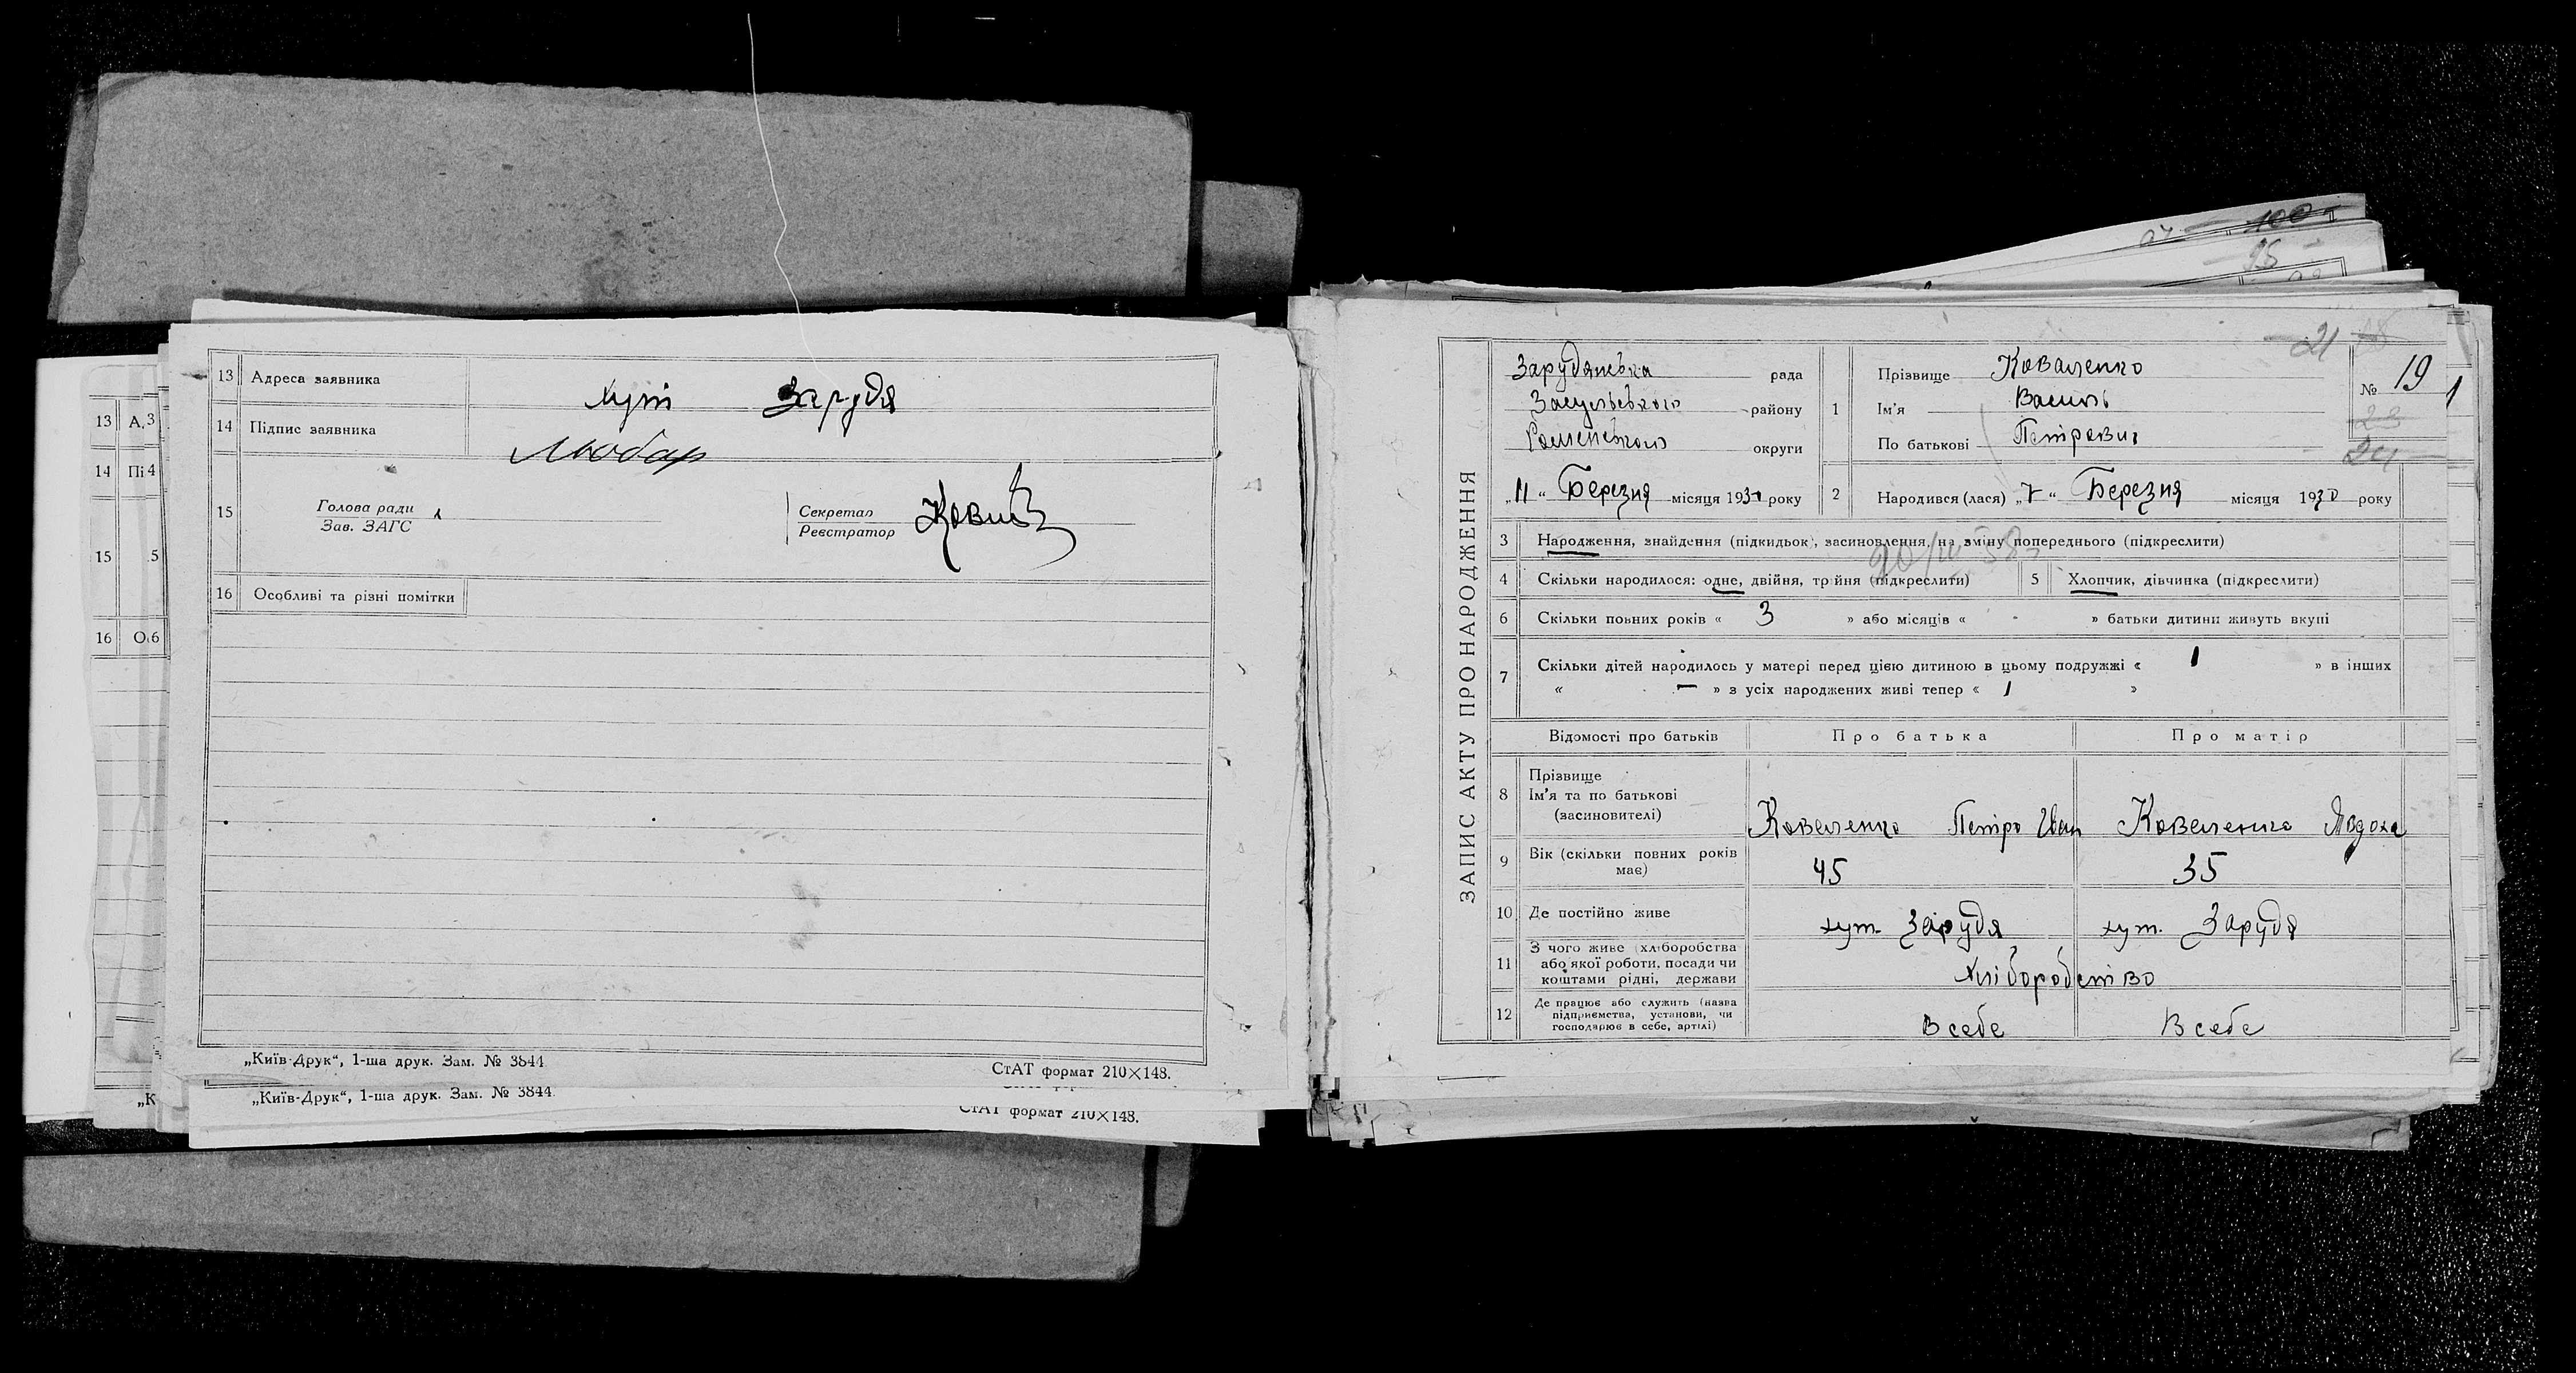 13 Адреса заявника хут Зарудя
14 Підпис заявника Любар
15 Голова ради
Зав. ЗАГС
Секретар
Реєстратор
16 Особливі та різні помітки
„Київ-Друк“, 1-ша друк. Зам. № 3844
СтАТ формат 210×148.
„Київ-Друк“, 1-ша друк. Зам. № 3844
СтАТ формат 210×148.
13 А, 3
14 Пі 4
15 5
16 О 6
„К
100
95
21
ЗАПИС АКТУ ПРО НАРОДЖЕННЯ
Зарудянська рада
Засульського району
Роменського округи
„11“ Березня місяця 1930 року
1 Прізвище Коваленко
Ім'я Василь
По батькові Петрович
№ 19
23
24
2 Народився (лася) „7“ Березня місяця 1930 року
3 Народження, знайдення (підкидьок), засиновлення, на зміну попереднього (підкреслити)
4 Скільки народилося: одне, двійня, трійня (підкреслити) 5 Хлопчик, дівчинка (підкреслити)
6 Скільки повних років « 3 » або місяців « - » батьки дитини живуть вкупі
7 Скільки дітей народилось у матері перед цією дитиною в цьому подружжі « 1 » в інших
« — » з усіх народжених живі тепер « 1 »
Відомості про батьків Про батька Про матір
8 Прізвище
Ім'я та по батькові
(засиновителі)
Коваленко Петро Іван Коваленко Явдоха
9 Вік (скільки повних років
має) 45 35
10 Де постійно живе хут. Зарудя хут. Зарудя
11 З чого живе (хліборобства
або якої роботи, посади чи
коштами рідні, держави
Хліборобство
12 Де працює або служить (назва
підприємства, установи, чи
господарює в себе, артілі)
В себе В себе